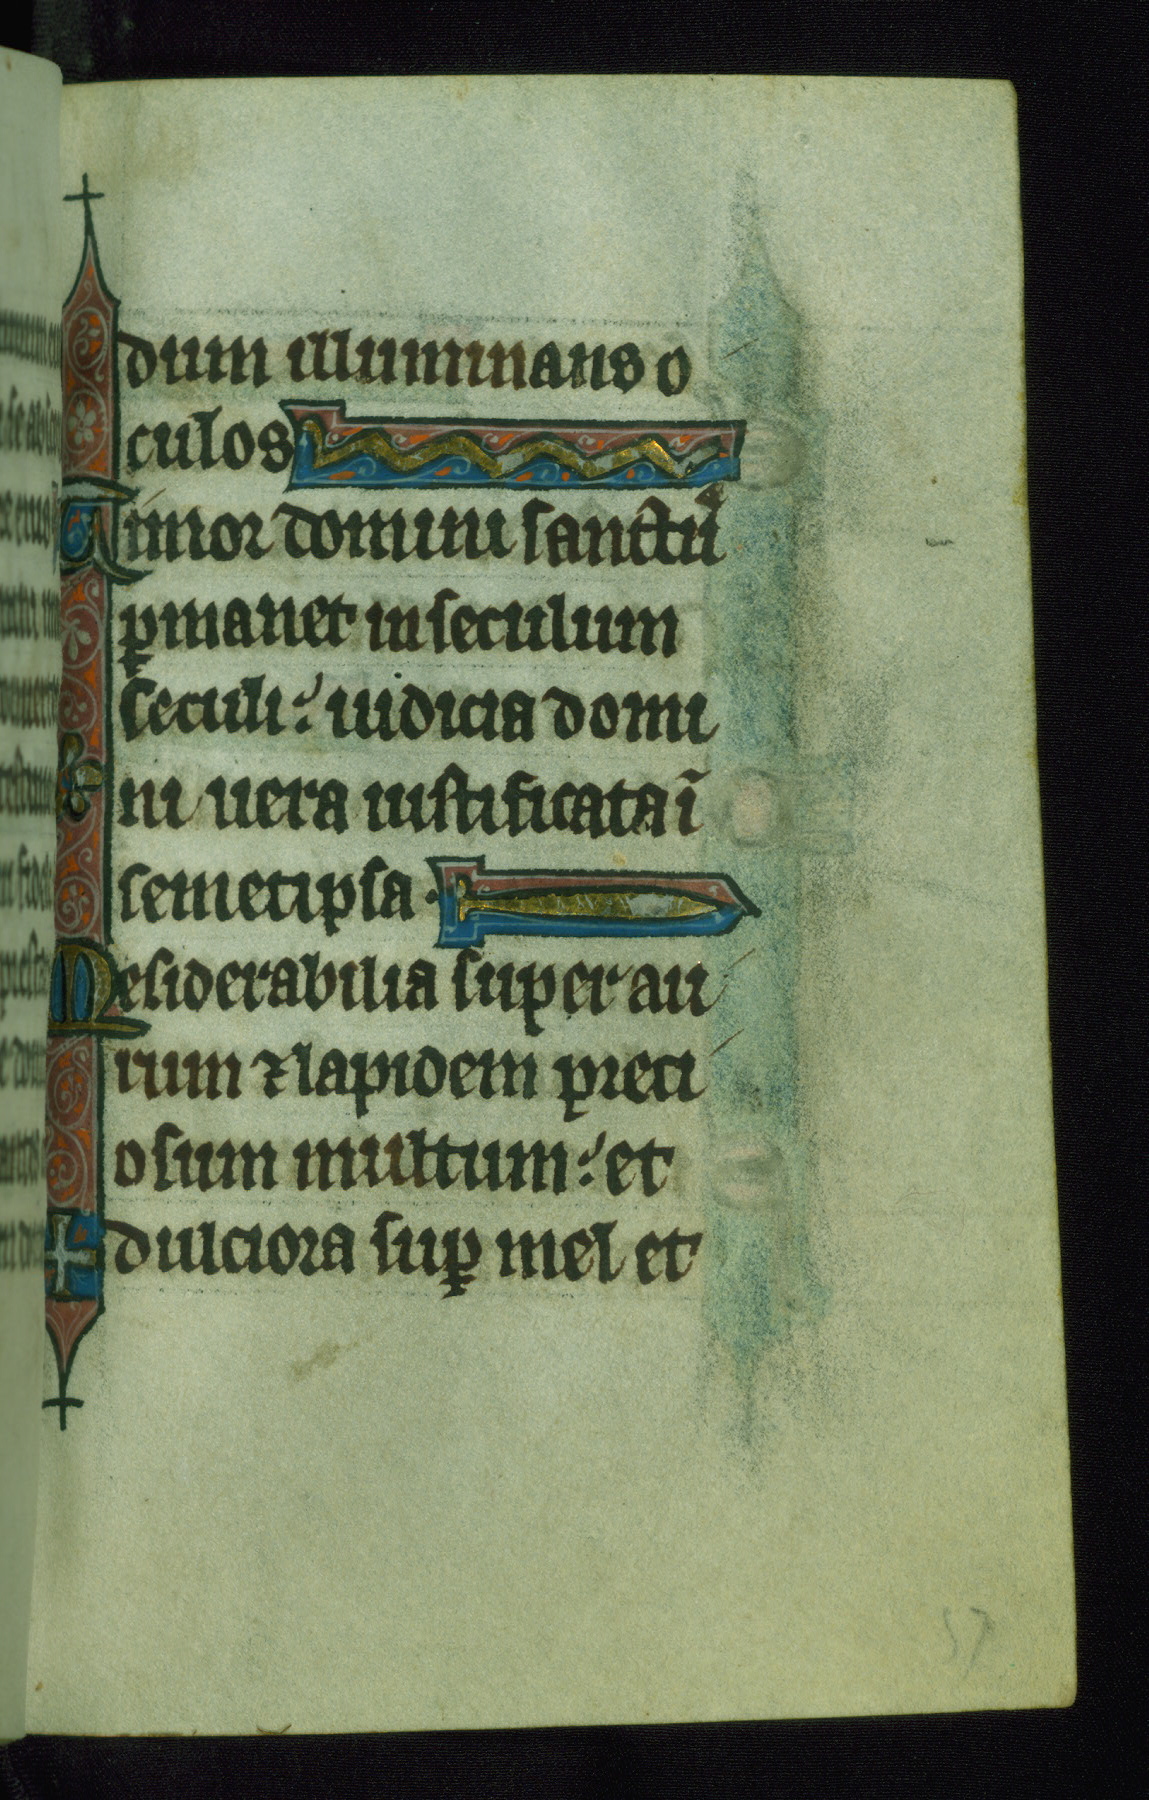 dum illuminans o
culos
Timor domini sanctū
ꝑmanet in seculum
seculi: iudicia domi
ni uera iustificata ī
semetipsa.
Desiderabilia super au
rum ⁊ lapidem preci
osum multum: et
dulciora suꝑ mel et
57